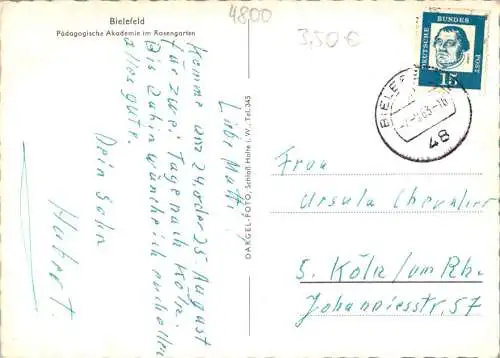 Bielefeld
Pädagogische Akademie im Rosengarten
4800
3,50 €
Liebe Mutti!
Komme am 24. oder 25. August
für zwei Tage nach Köln.
Bis dahin wünsche ich euch allen
alles gute.
Dein Sohn
Hubert.
DARGEL-FOTO, Schloß Holte i. W., Tel. 345
DEUTSCHE BUNDES POST
15
BIELEF
63-1
48
Frau
Ursula Chevalier
5. Köln/am Rh.
Johanniesstr. 57